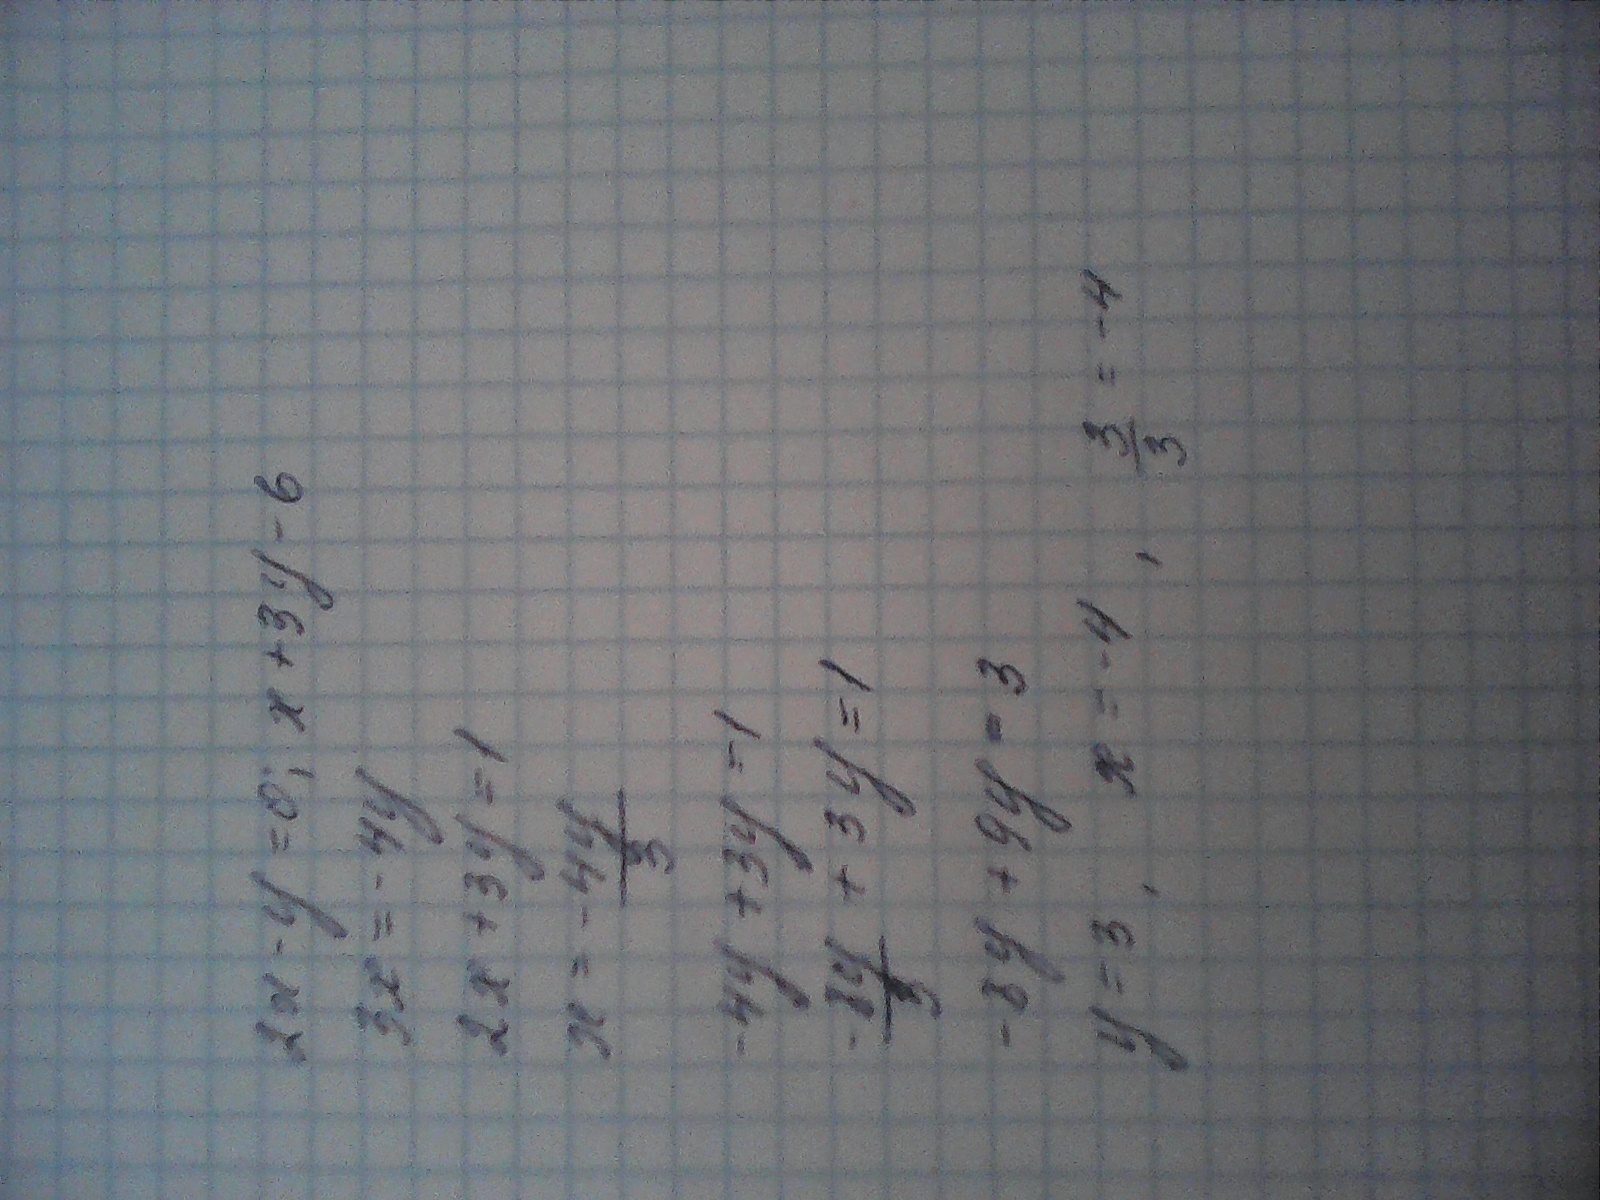 2x - y = 0; x + 3y - 6
3x = -4y
2x + 3y = 1
x = -4y/3
-4y + 3y = 1
-8y/3 + 3y = 1
-8y + 9y = 3
y = 3, x = -4, 3/3 = -4